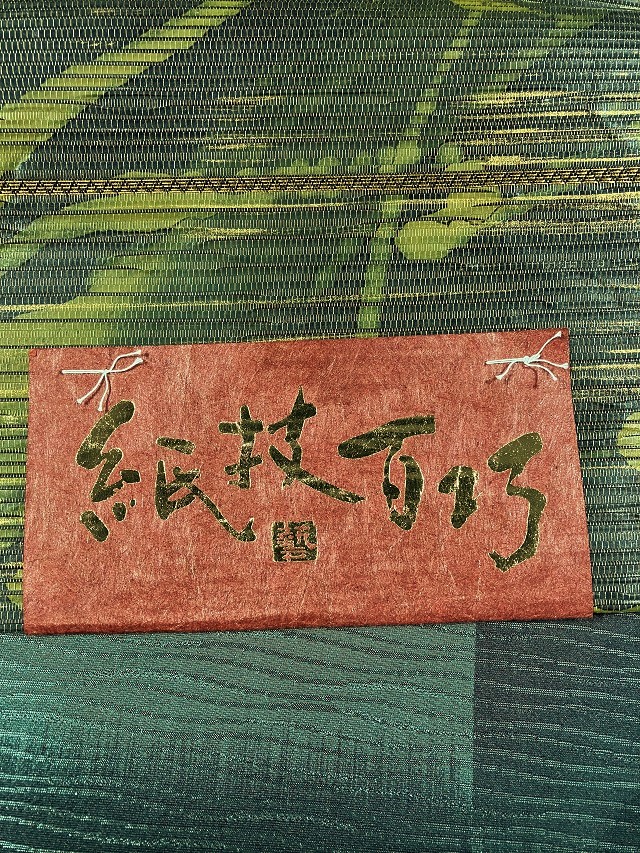 紙技百巧
藝